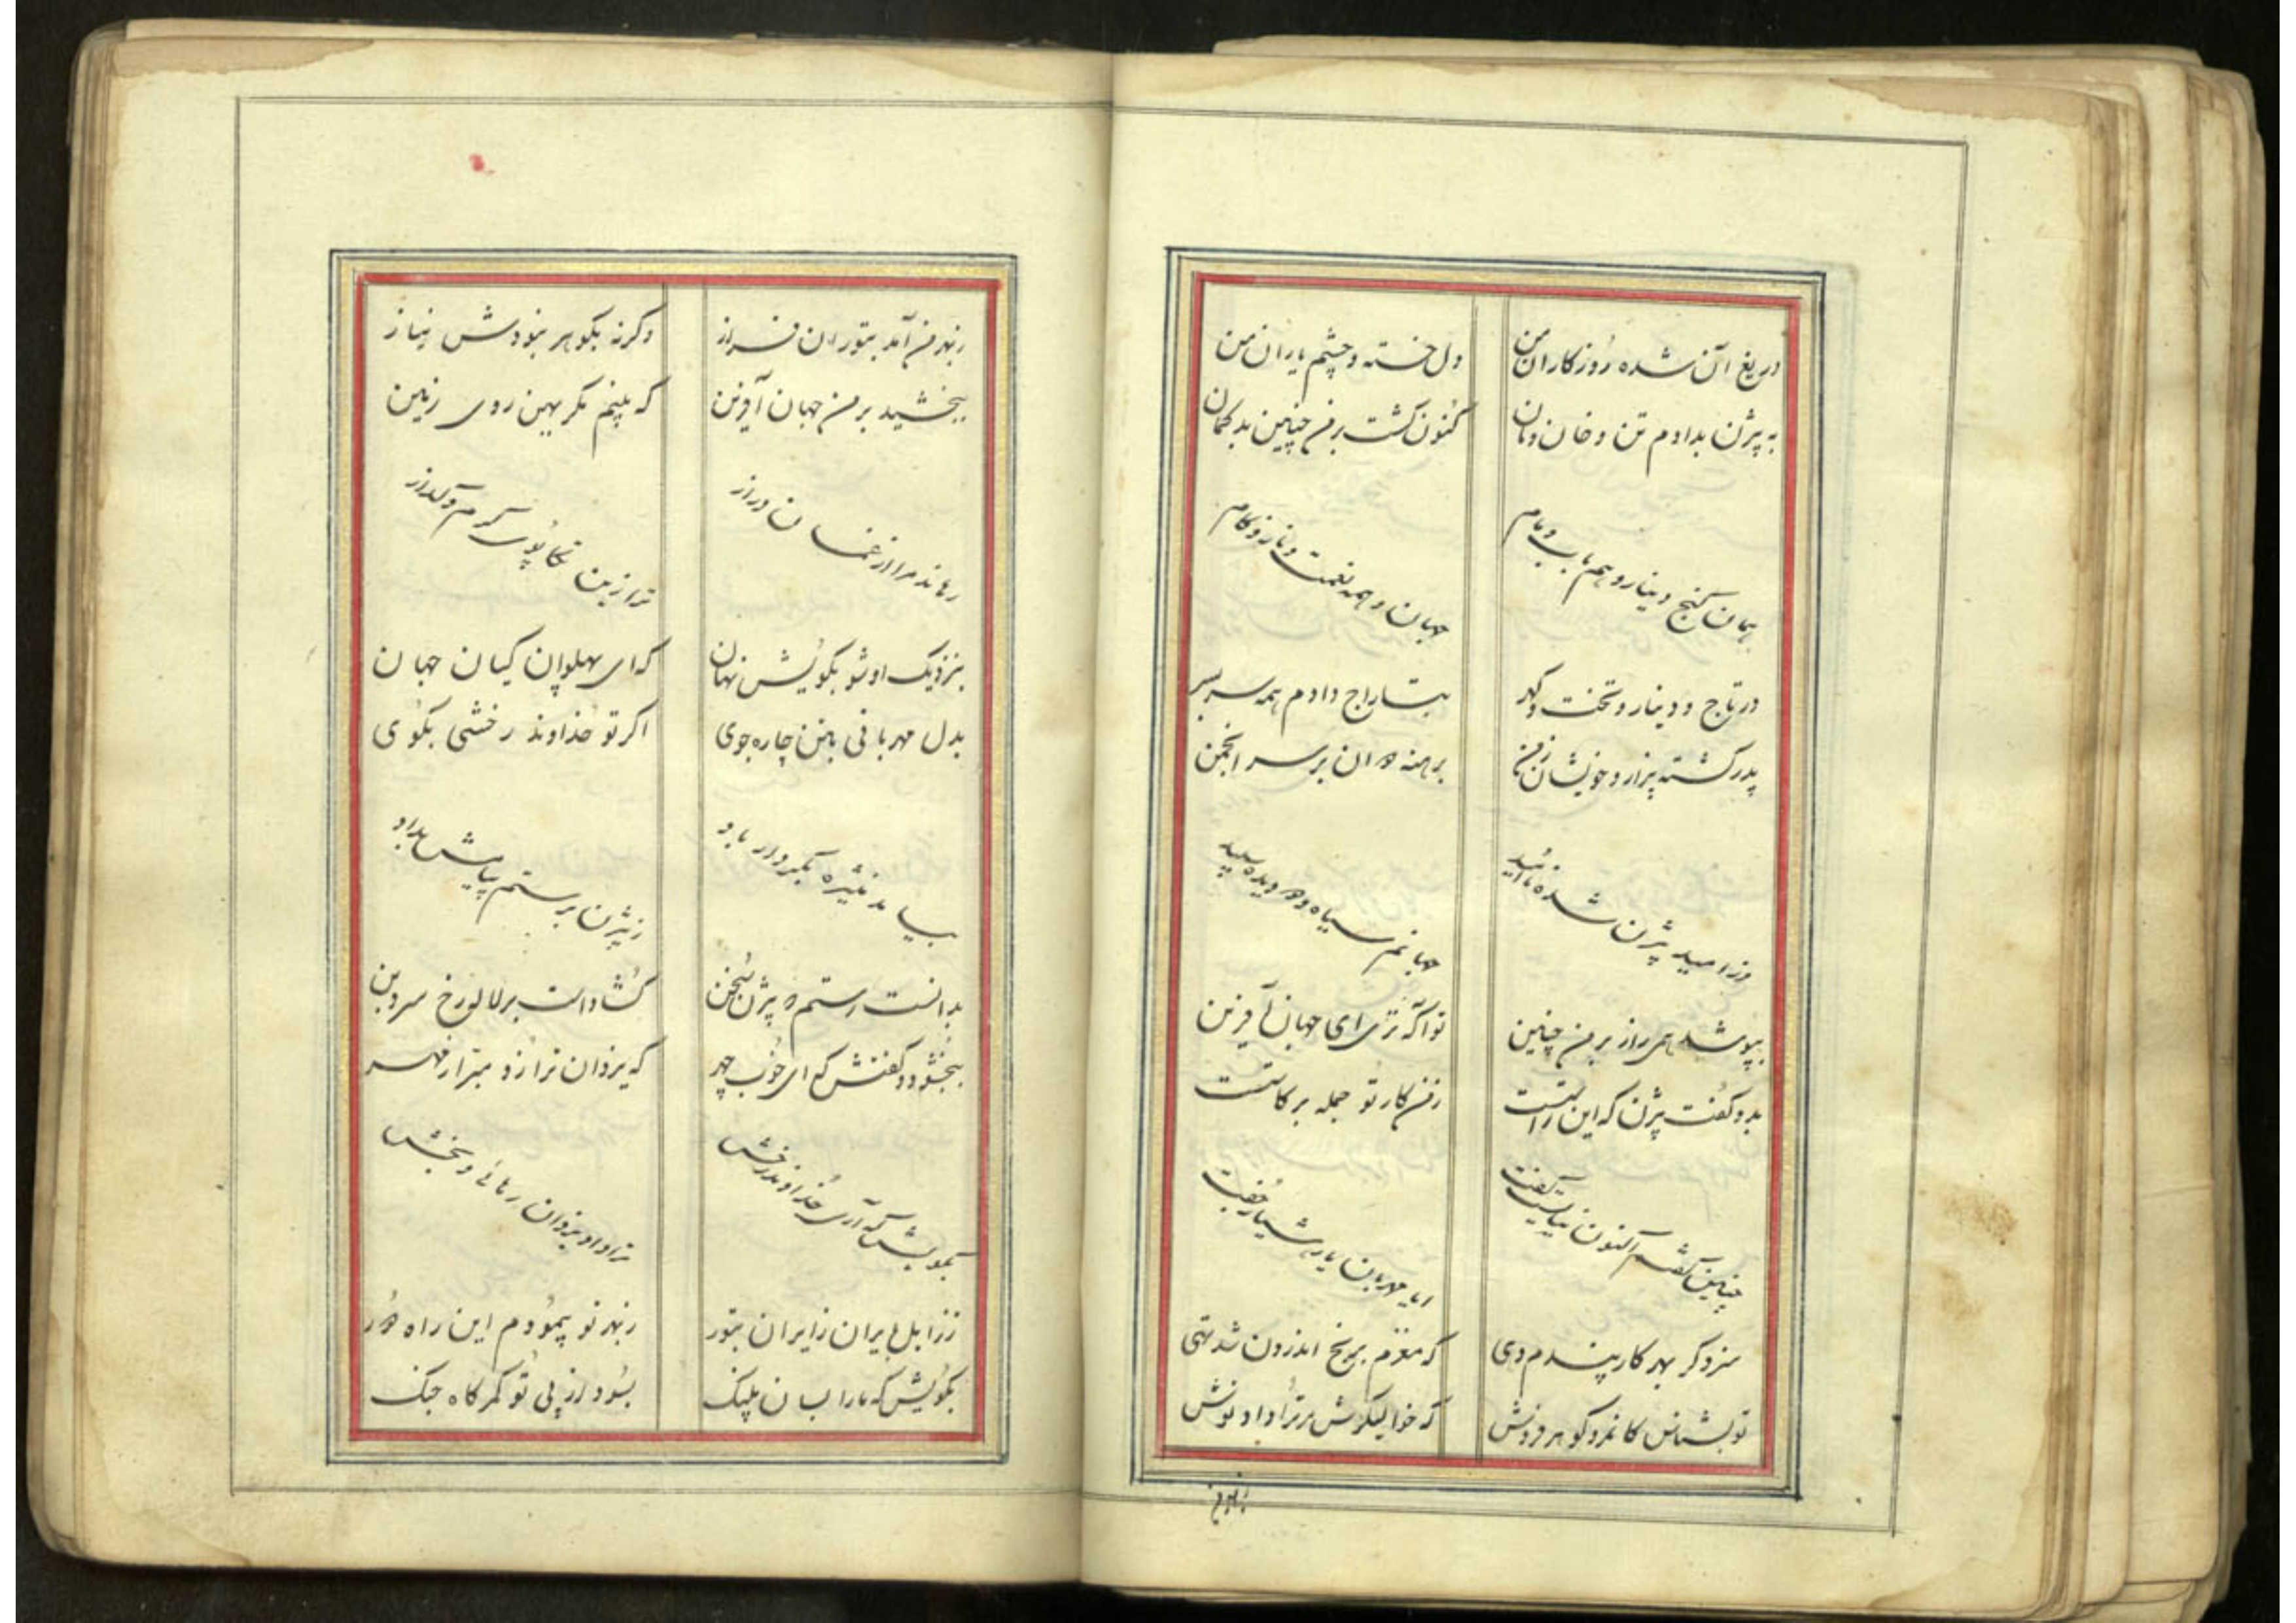 دریغ آن شده روزکاران من دل خسته و چشم یاران من
به پیژن بدادم تن و خان و مان کنون کشت بر من چنین بدکمان
همان کنج دینار و هم باب و مام جهان و همه نعمت و ناز و کام
در تاج و دینار و تخت و کهر بتاراج دادم همه سربسر
پدر کشته پیزار و خویشان ز من برهنه دوان بر سر انجمن
وز امید پیژن شده ناامید جهانم سیاه و دو دیده سپید
بپوشد همی راز بر من چنین تو آکه تری ای جهان آفرین
بدو کفت پیژن که این راست ز من کار تو جمله بر کاست
چنین کفتم اکنون نبایست کفت ایا مهربان یار هشیار جفت
سزد کر بهر کار پندم دهی که مغزم برنج اندرون شد تهی
تو بشناس کان مرد کوهر فروش که خوالیکرش مر ترا داد نوش
ز بهر من آمد بتوران فراز وکرنه بکوهر نبودش نیاز
ببخشید بر من جهان آفرین که بینم مکر پهن روی زمین
رهاند مرا از غمان دراز ترا زین تکاپوی کرم و کداز
بنزدیک او شو بکویش نهان که ای پهلوان کیان جهان
بدل مهربانی بتن چاره جوی اکر تو خداوند رخشی بکوی
بیامد منیژه بکردار باد ز پیژن برستم پیامش بداد
بدانست رستم که پیژن سخن کشادست بر لاله رخ سرو بن
ببخشود و کفتش که ای خوب چهر که یزدان ترا زو مبراد مهر
بکویش که آری خداوند رخش ترا داد یزدان رهائی و بخش
ز زابل بایران ز ایران بتور ز بهر تو پیمودم این راه دور
بکویش که ما را بسان پلنک بسود از پی تو کمرکاه جنک